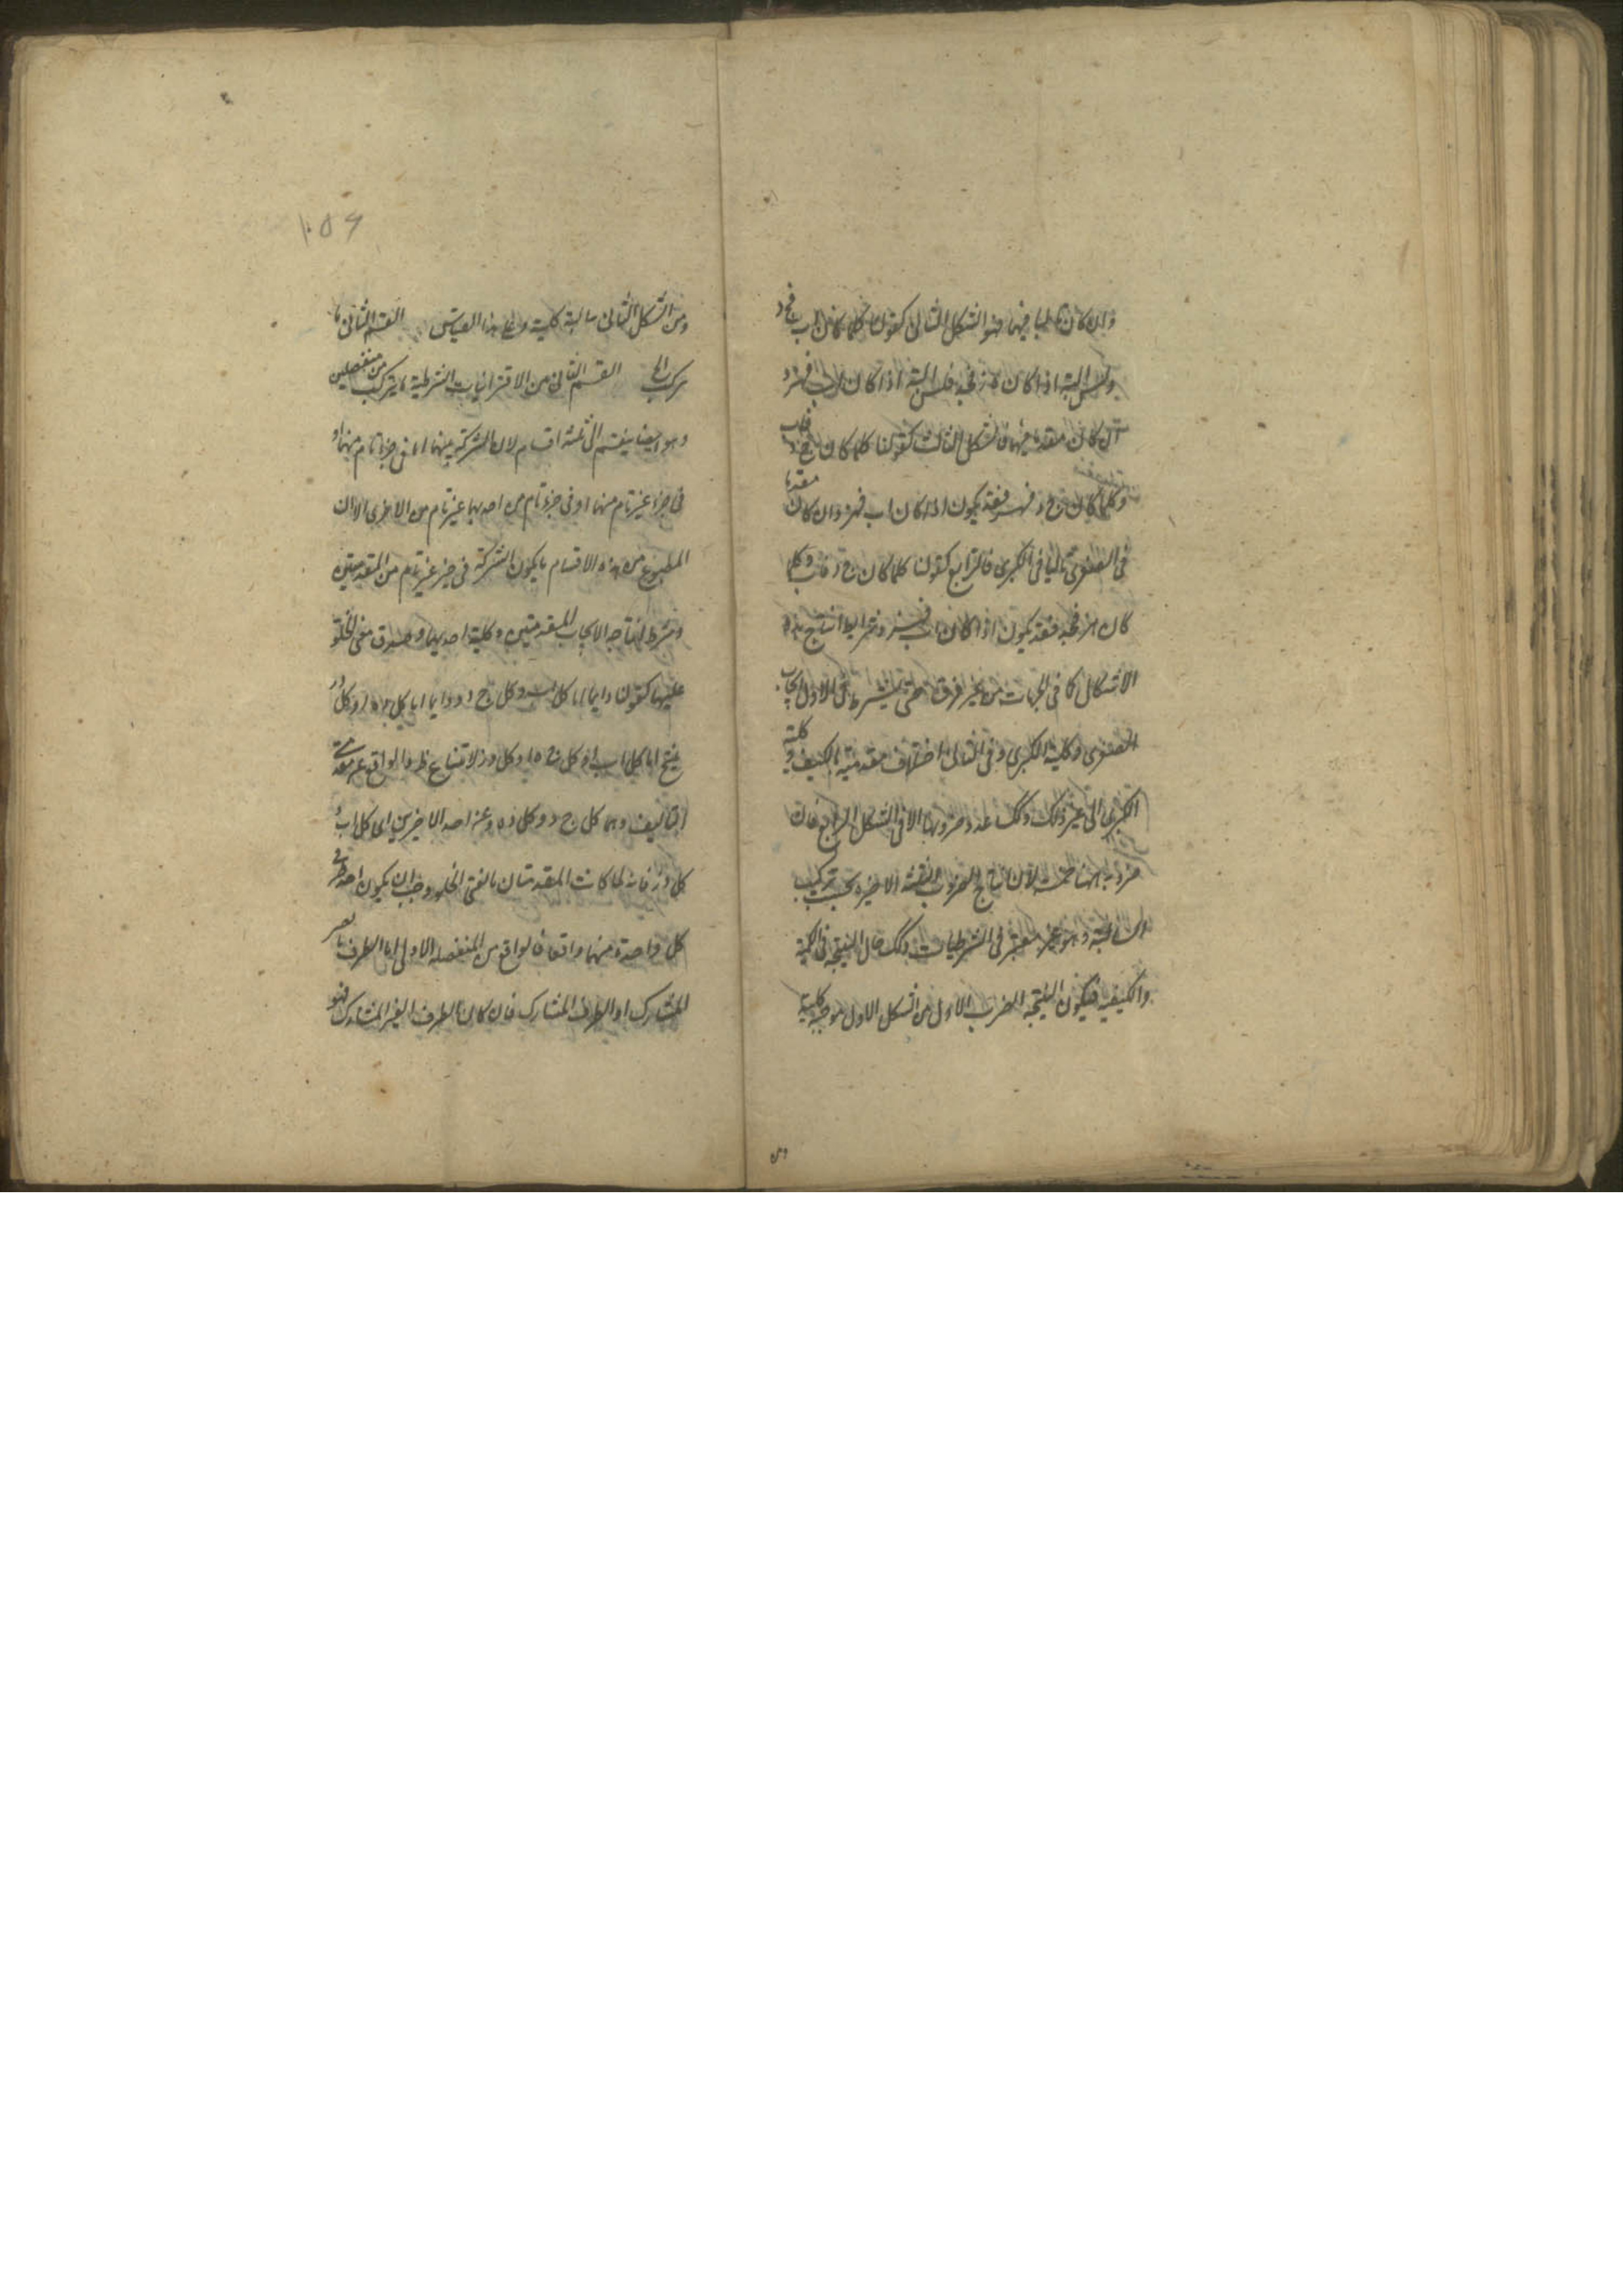 وان كان تاليا فيهما فهو الشكل الثانى كقولنا كلما كان ا ب فج د
وليس البتة اذا كان ه ز فج د فليس البتة اذا كان ا ب فه ز و
ان كان مقدما فيهما فالشكل الثالث كقولنا كلما كان ج د فا ب
وكلما كان ج د فه ز فقد يكون اذا كان ا ب فه ز وان كان مقدما
فى الصغرى تاليا فى الكبرى فالرابع كقولنا كلما كان ج د فا ب وكلما
كان ه ز فج د فقد يكون اذا كان ا ب فه ز وشرايط انتاج هذه
الاشكال كما فى الحمليات من غير فرق حتى يشترط فى الاول ايجاب
الصغرى وكلية الكبرى وفى الثانى اختلاف مقدمتيه بالكيف وكلية
الكبرى الى غير ذلك وكذلك عدد ضروبها الا فى الشكل الرابع فان
ضروبه ههنا خمسة لان انتاج الضروب الثلثة الاخيرة بحسب تركيب
السالبة وهو غير معتبر فى الشرطيات وكذلك حال النتيجة فى الكمية
والكيفية فيكون النتيجة الضرب الاول من الشكل الاول موجبة كلية
ومن
١٠٥٦
ومن الشكل الثانى سالبة كلية وعلى هذا القياس القسم الثانى ما
يتركب الى القسم الثانى من الاقترانيات الشرطية ما يتركب من منفصلتين
وهو ايضا ينقسم الى ثلثة اقسام لان الشركة بينهما اما فى جزء تام منهما او
فى جزء غير تام منهما او فى جزء تام من احديهما غير تام من الاخرى الا ان
المطبوع من هذه الاقسام ما يكون الشركة فى جزء غير تام من المقدمتين
وشرط انتاجه الايجاب المقدمتين وكلية احديهما وصدق منع الخلو
عليهما كقولنا دايما اما كل ا ب وكل ج د ودايما اما كل د ه او كل و ز
ينتج اما كل ا ب او كل ج ه او كل و ز لامتناع خلو الواقع عن مقدمتى
التاليف وهما كل ج د وكل د ه وعن احد الاخيرين اى كل ا ب و
كل و ز فانه لما كانت المقدمتان مانعتى الخلو وجب ان يكون احد طرفى
كل واحدة منهما واقعا فالواقع من المنفصلة الاولى اما الطرف الغير
المشارك او الطرف المشارك فان كان الطرف الغير المشارك فهو